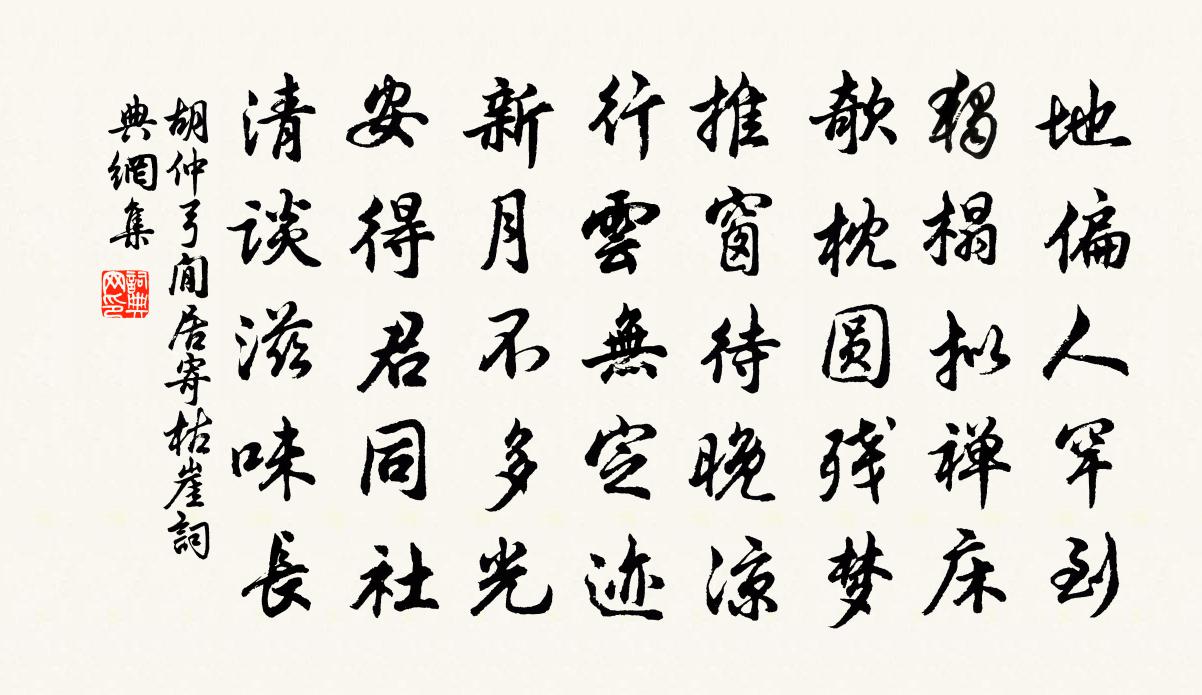 地偏人罕到
獨榻拟禅床
欹枕圆残梦
推窗待晚涼
行雲無定迹
新月不多光
安得君同社
清談滋味長
胡仲弓閒居寄枯崖詞
典網集
詞典网印